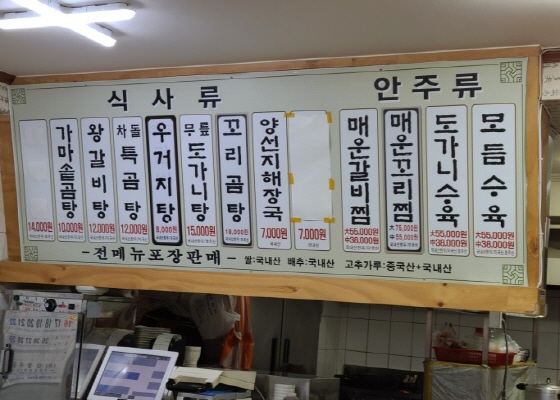 식사류
안주류
14,000원
가마솥곰탕
10,000원
왕갈비탕
12,000원
차돌
특곰탕
12,000원
우거지탕
8,000원
무릎
도가니탕
15,000원
꼬리곰탕
18,000원
양선지해장국
7,000원
7,000원
매운갈비찜
大55,000원
中38,000원
매운꼬리찜
大 75,000원
中 55,000원
도가니수육
大55,000원
中38,000원
모듬수육
大55,000원
中38,000원
-전메뉴포장판매-
쌀:국내산 배추:국내산 고추가루:중국산+국내산